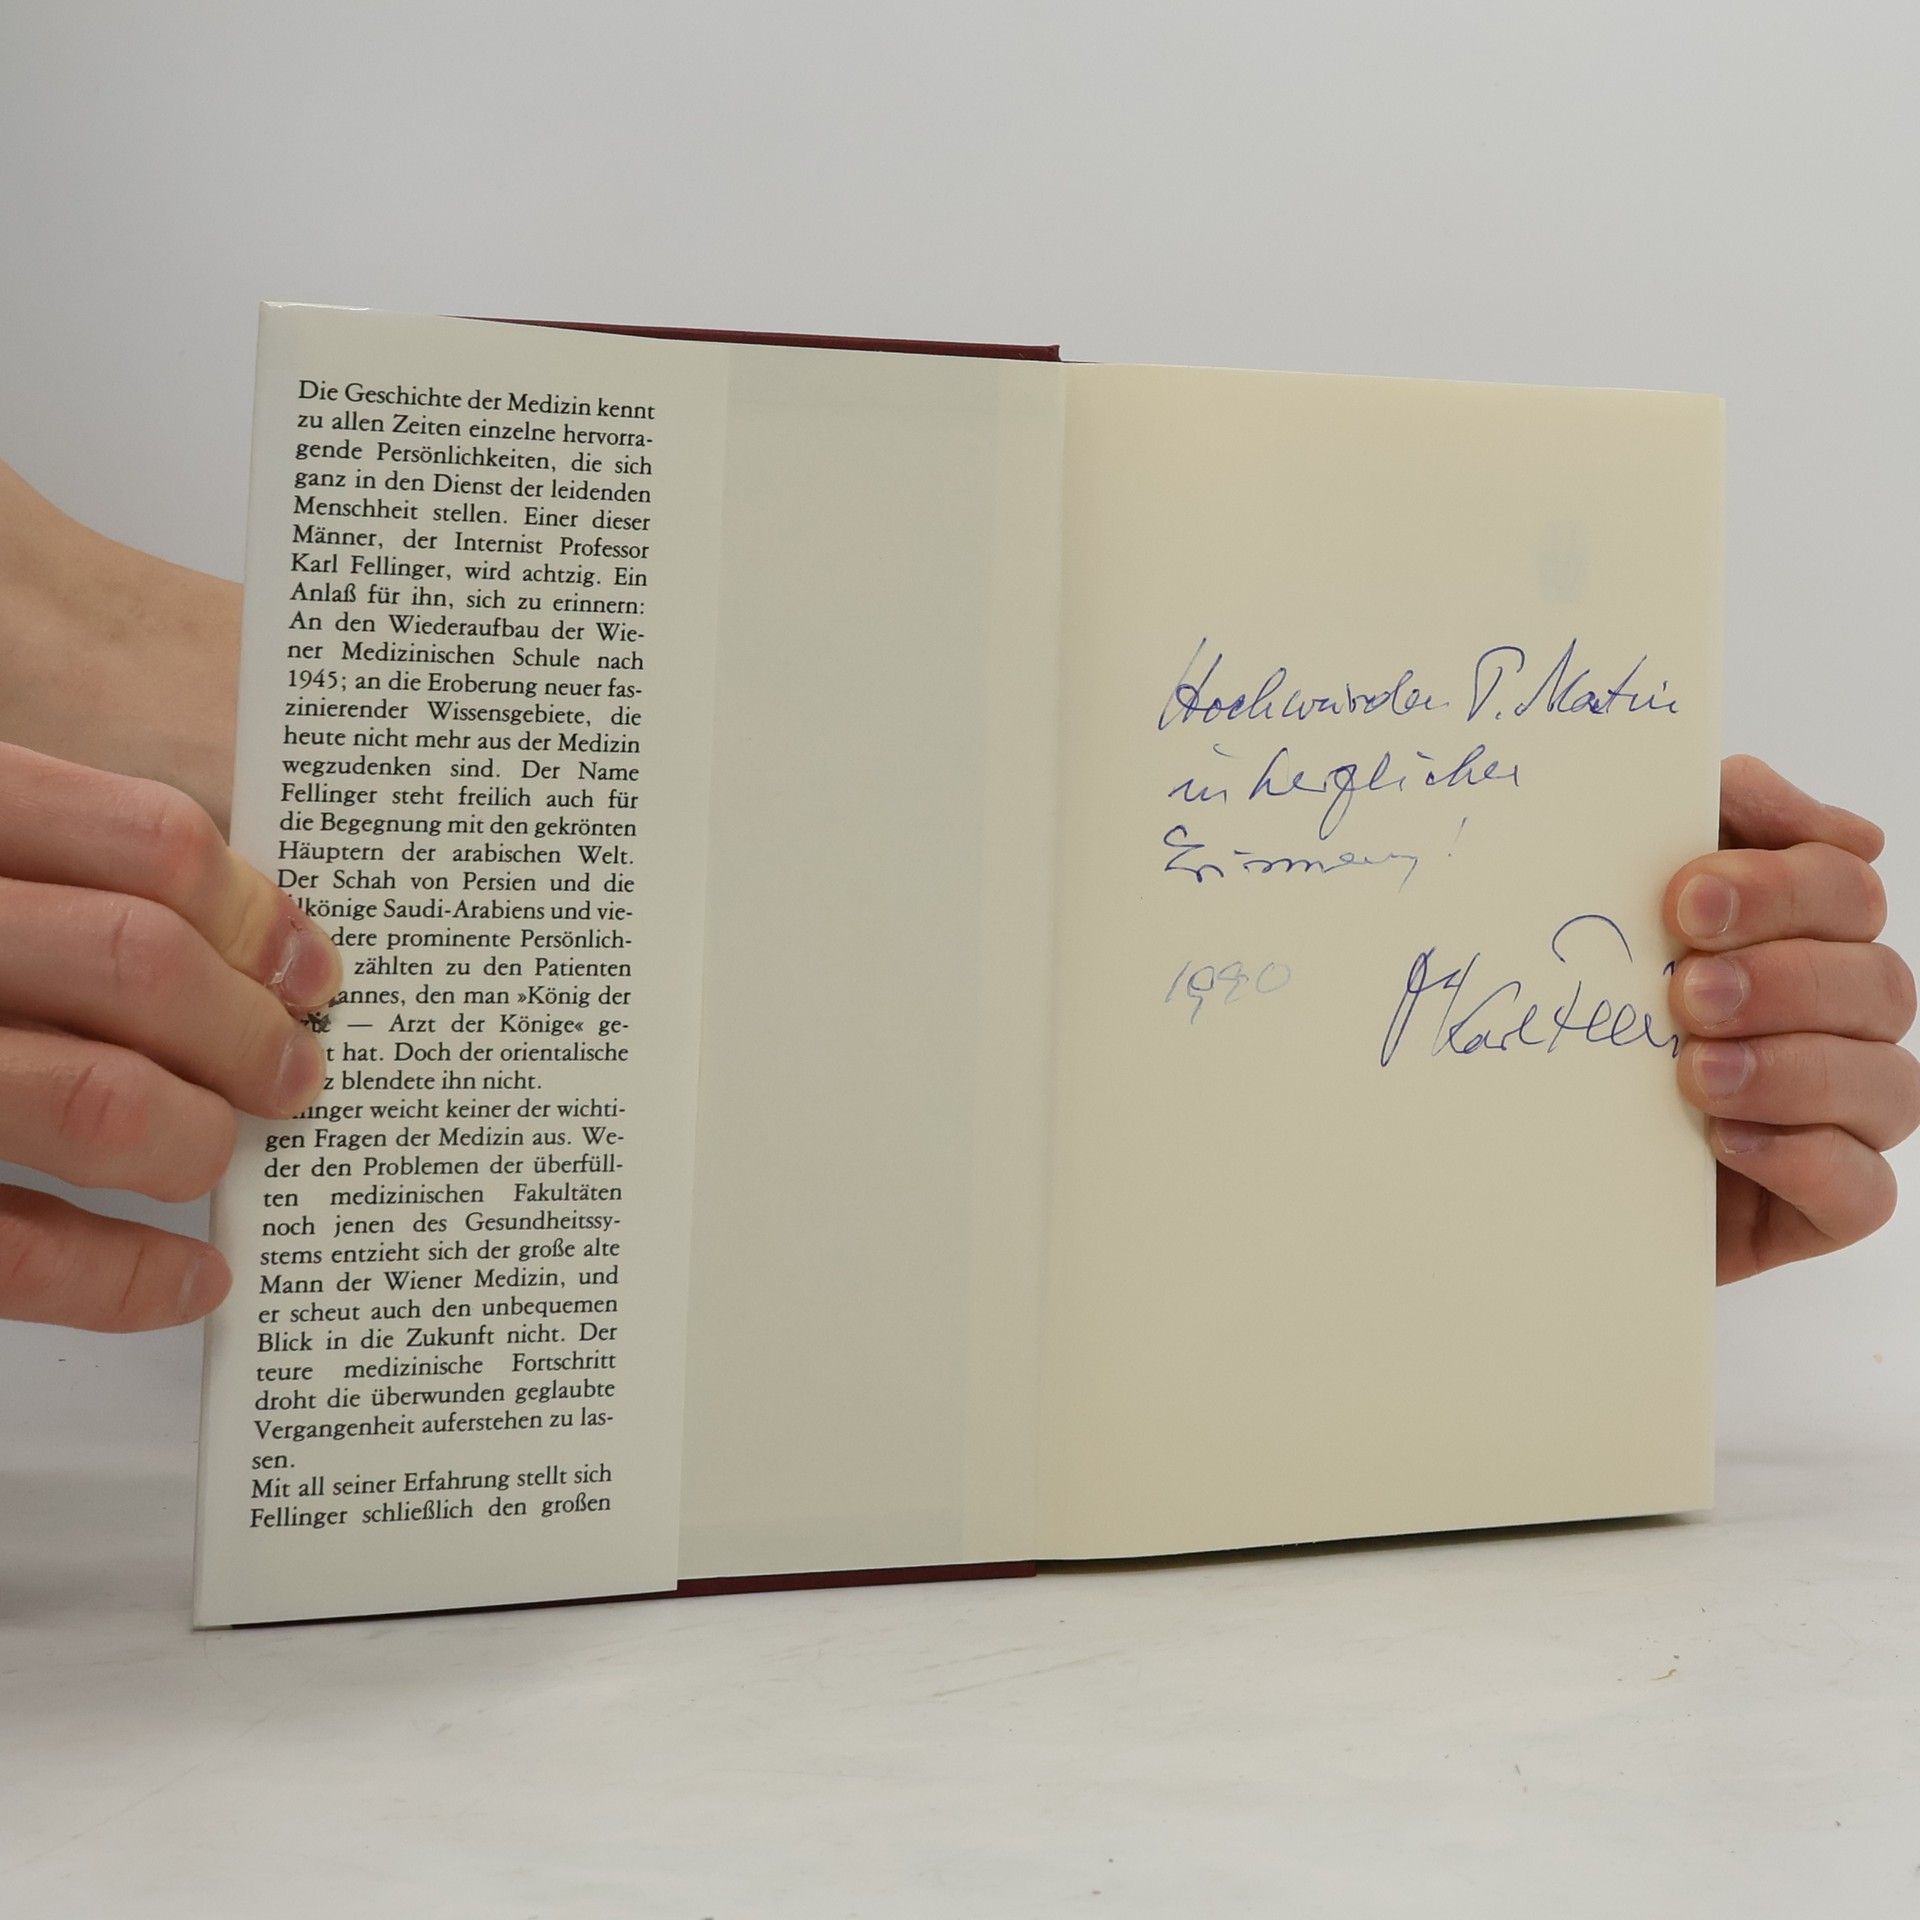 Die Geschichte der Medizin kennt
zu allen Zeiten einzelne hervorra-
gende Persönlichkeiten, die sich
ganz in den Dienst der leidenden
Menschheit stellen. Einer dieser
Männer, der Internist Professor
Karl Fellinger, wird achtzig. Ein
Anlaß für ihn, sich zu erinnern:
An den Wiederaufbau der Wie-
ner Medizinischen Schule nach
1945; an die Eroberung neuer fas-
zinierender Wissensgebiete, die
heute nicht mehr aus der Medizin
wegzudenken sind. Der Name
Fellinger steht freilich auch für
die Begegnung mit den gekrönten
Häuptern der arabischen Welt.
Der Schah von Persien und die
lkönige Saudi-Arabiens und vie-
dere prominente Persönlich-
zählten zu den Patienten
annes, den man »König der
— Arzt der Könige« ge-
t hat. Doch der orientalische
z blendete ihn nicht.
inger weicht keiner der wichti-
gen Fragen der Medizin aus. We-
der den Problemen der überfüll-
ten medizinischen Fakultäten
noch jenen des Gesundheitssy-
stems entzieht sich der große alte
Mann der Wiener Medizin, und
er scheut auch den unbequemen
Blick in die Zukunft nicht. Der
teure medizinische Fortschritt
droht die überwunden geglaubte
Vergangenheit auferstehen zu las-
sen.
Mit all seiner Erfahrung stellt sich
Fellinger schließlich den großen
Hochwürden P. Martin
in herzlicher
Erinnerung!
1990
Karl Fell